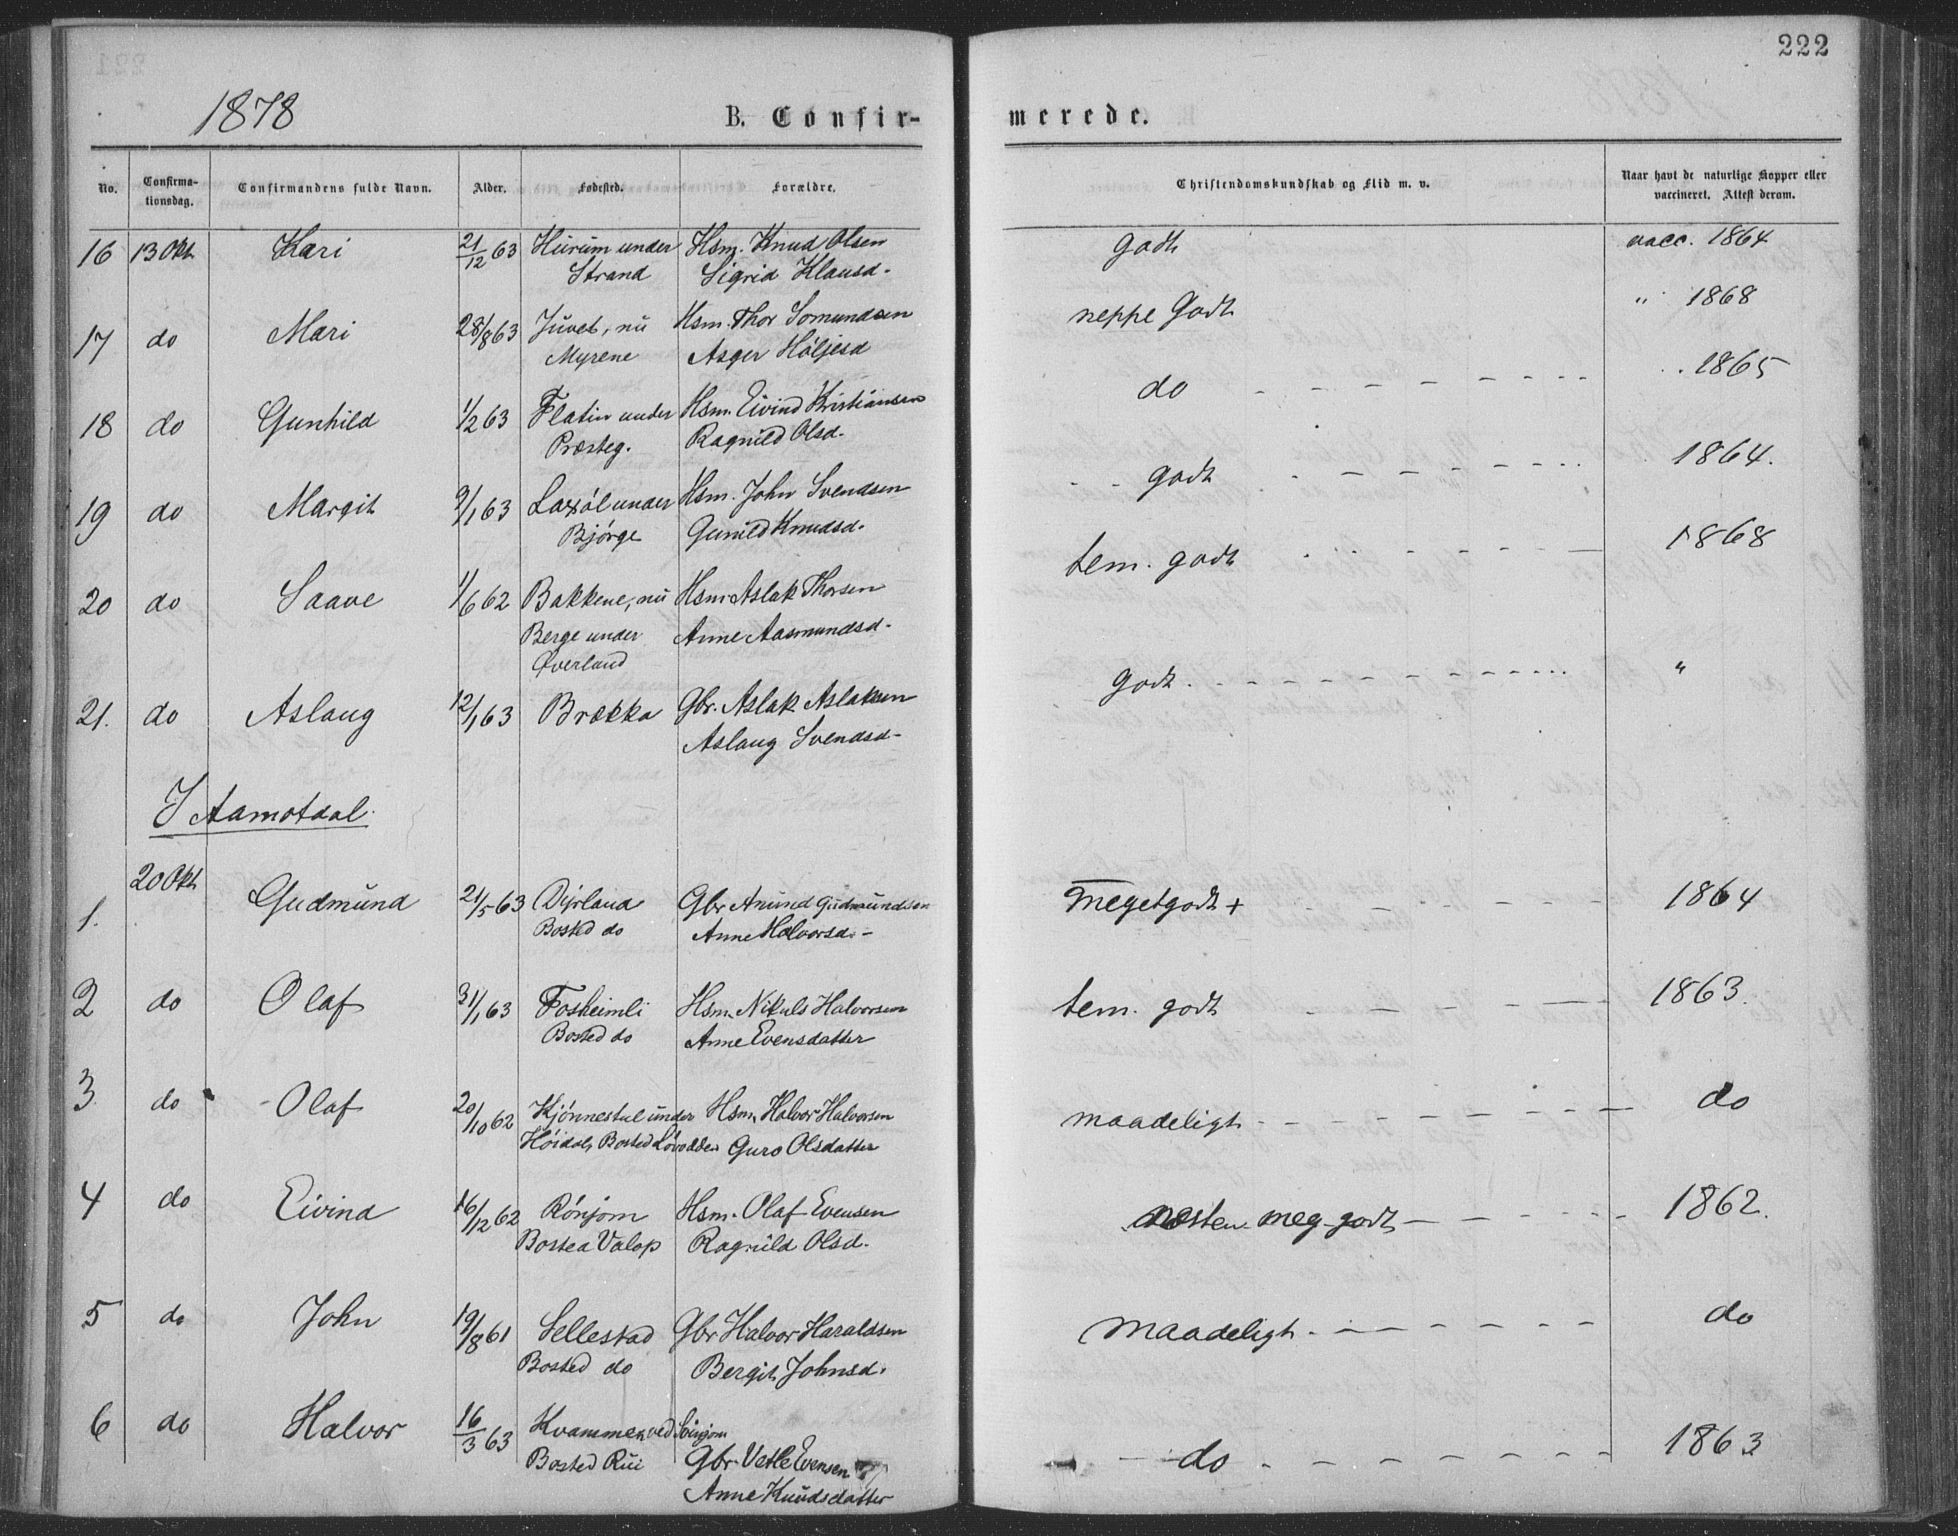 222
1878
B. Confir-
merede.
No.
Confirma-
tionsdag.
Confirmandens fulde Navn.
Alder.
Fødested.
Forældre.
Christendomskundskab og Flid m. v.
Naar havt de naturlige Kopper eller
vaccineret. Attest derom.
16 13 Okt Kari 21/12 63 Hurum under Hsm. Knud Olsen godt vacc. 1864
Strand Sigrid Klausd.
17 do Mari 28/8 63 Juvet, nu Hsm. Thor Somundsen neppe Godt " 1868
Myrene Asger Høljesd
18 do Gunhild 1/2 63 Flatin under Hsm. Eivind Kristiansen do 1865
Præsteg. Ragnild Olsd.
19 do Margit 9/1 63 Laxøl under Hsm. John Svendsen godt 1864.
Bjørge Gunild Knudsd.
20 do Saave 1/6 62 Bakkene, nu Hsm Aslak Thorsen tem. godt 1868
Berge under Anne Aasmundsd.
Øverland
21. do Aslaug 12/1 63 Brækka Gbr. Aslak Aslaksen godt. "
Aslaug Svendsd-
I Aamotdal.
1. 20 Okt Gudmund 21/5 63 Dyrland Gbr Anund Gudmundsen megetgodt + 1864
Bosted do Anne Halvorsd. -
2 do Olaf 31/1 63 Fosheimli Hsm. Nikuls Halvorsen tem. godt 1863.
Bosted do Anne Evensdatter
3 do Olaf 20/10 62 Kjønnestul under Hsm. Halvor Halvorsen maadeligt do
Høidal, Bosted Løvodden Guro Olsdatter
4 do Eivind 16/12 62 Rønjom Hsm. Olaf Evensen næsten meg godt 1862.
Bosted Valop Ragnild Olsd.
5 do John 19/8 61 Sellestad Gbr Halvor Haraldsen maadeligt. do
Bosted do Bergit Johnsd.
6 do Halvor 16/3 63 Kvammen ved Sinjom do 1863
Bosted Rui Gbr. Vetle Evensen
Anne Knudsdatter